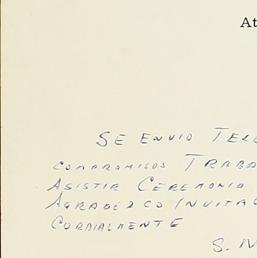 At
SE ENVIO TELE
COMPROMISOS TRABA
ASISTIR CEREMONIA
AGRADEZCO INVITAC
CORDIALMENTE
S. N